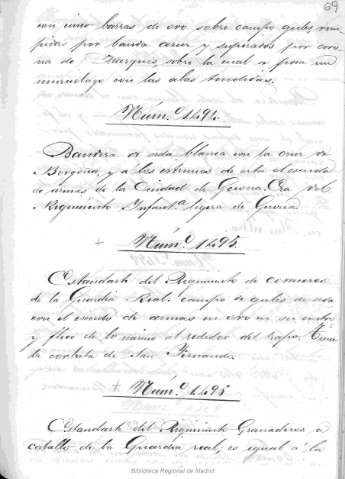 69
con cinco barras de oro sobre campo gules, com-
por banda azur y superados por coro-
na de Marqués sobre la cual se posa un
murcielago con las alas tendidas.
Núm.º 1.494.
Bandera de seda blanca con la cruz de
Borgoña, y a los estremos de esta el escudo
de armas de la Ciudad de Gerona. Era del
Regimiento Infant.ª ligera de Gerona.
+ Núm.º 1.495.
Estandarte del Regimiento de coraceros
de la Guardia Real: campo de gules de seda
con el escudo de armas en oro en su centro
y fleco de lo mismo al rededor del trapo. Tiene
la corbata de San Fernando.
+ Núm.º 1.496
Estandarte del Regimiento Granaderos a
caballo de la Guardia real, es igual á la
Biblioteca Regional de Madrid